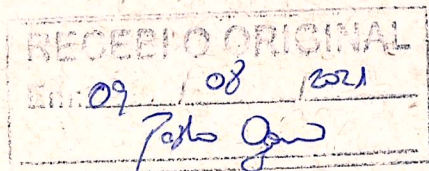 RECEBI O ORIGINAL
Em: 09 / 08 / 2021